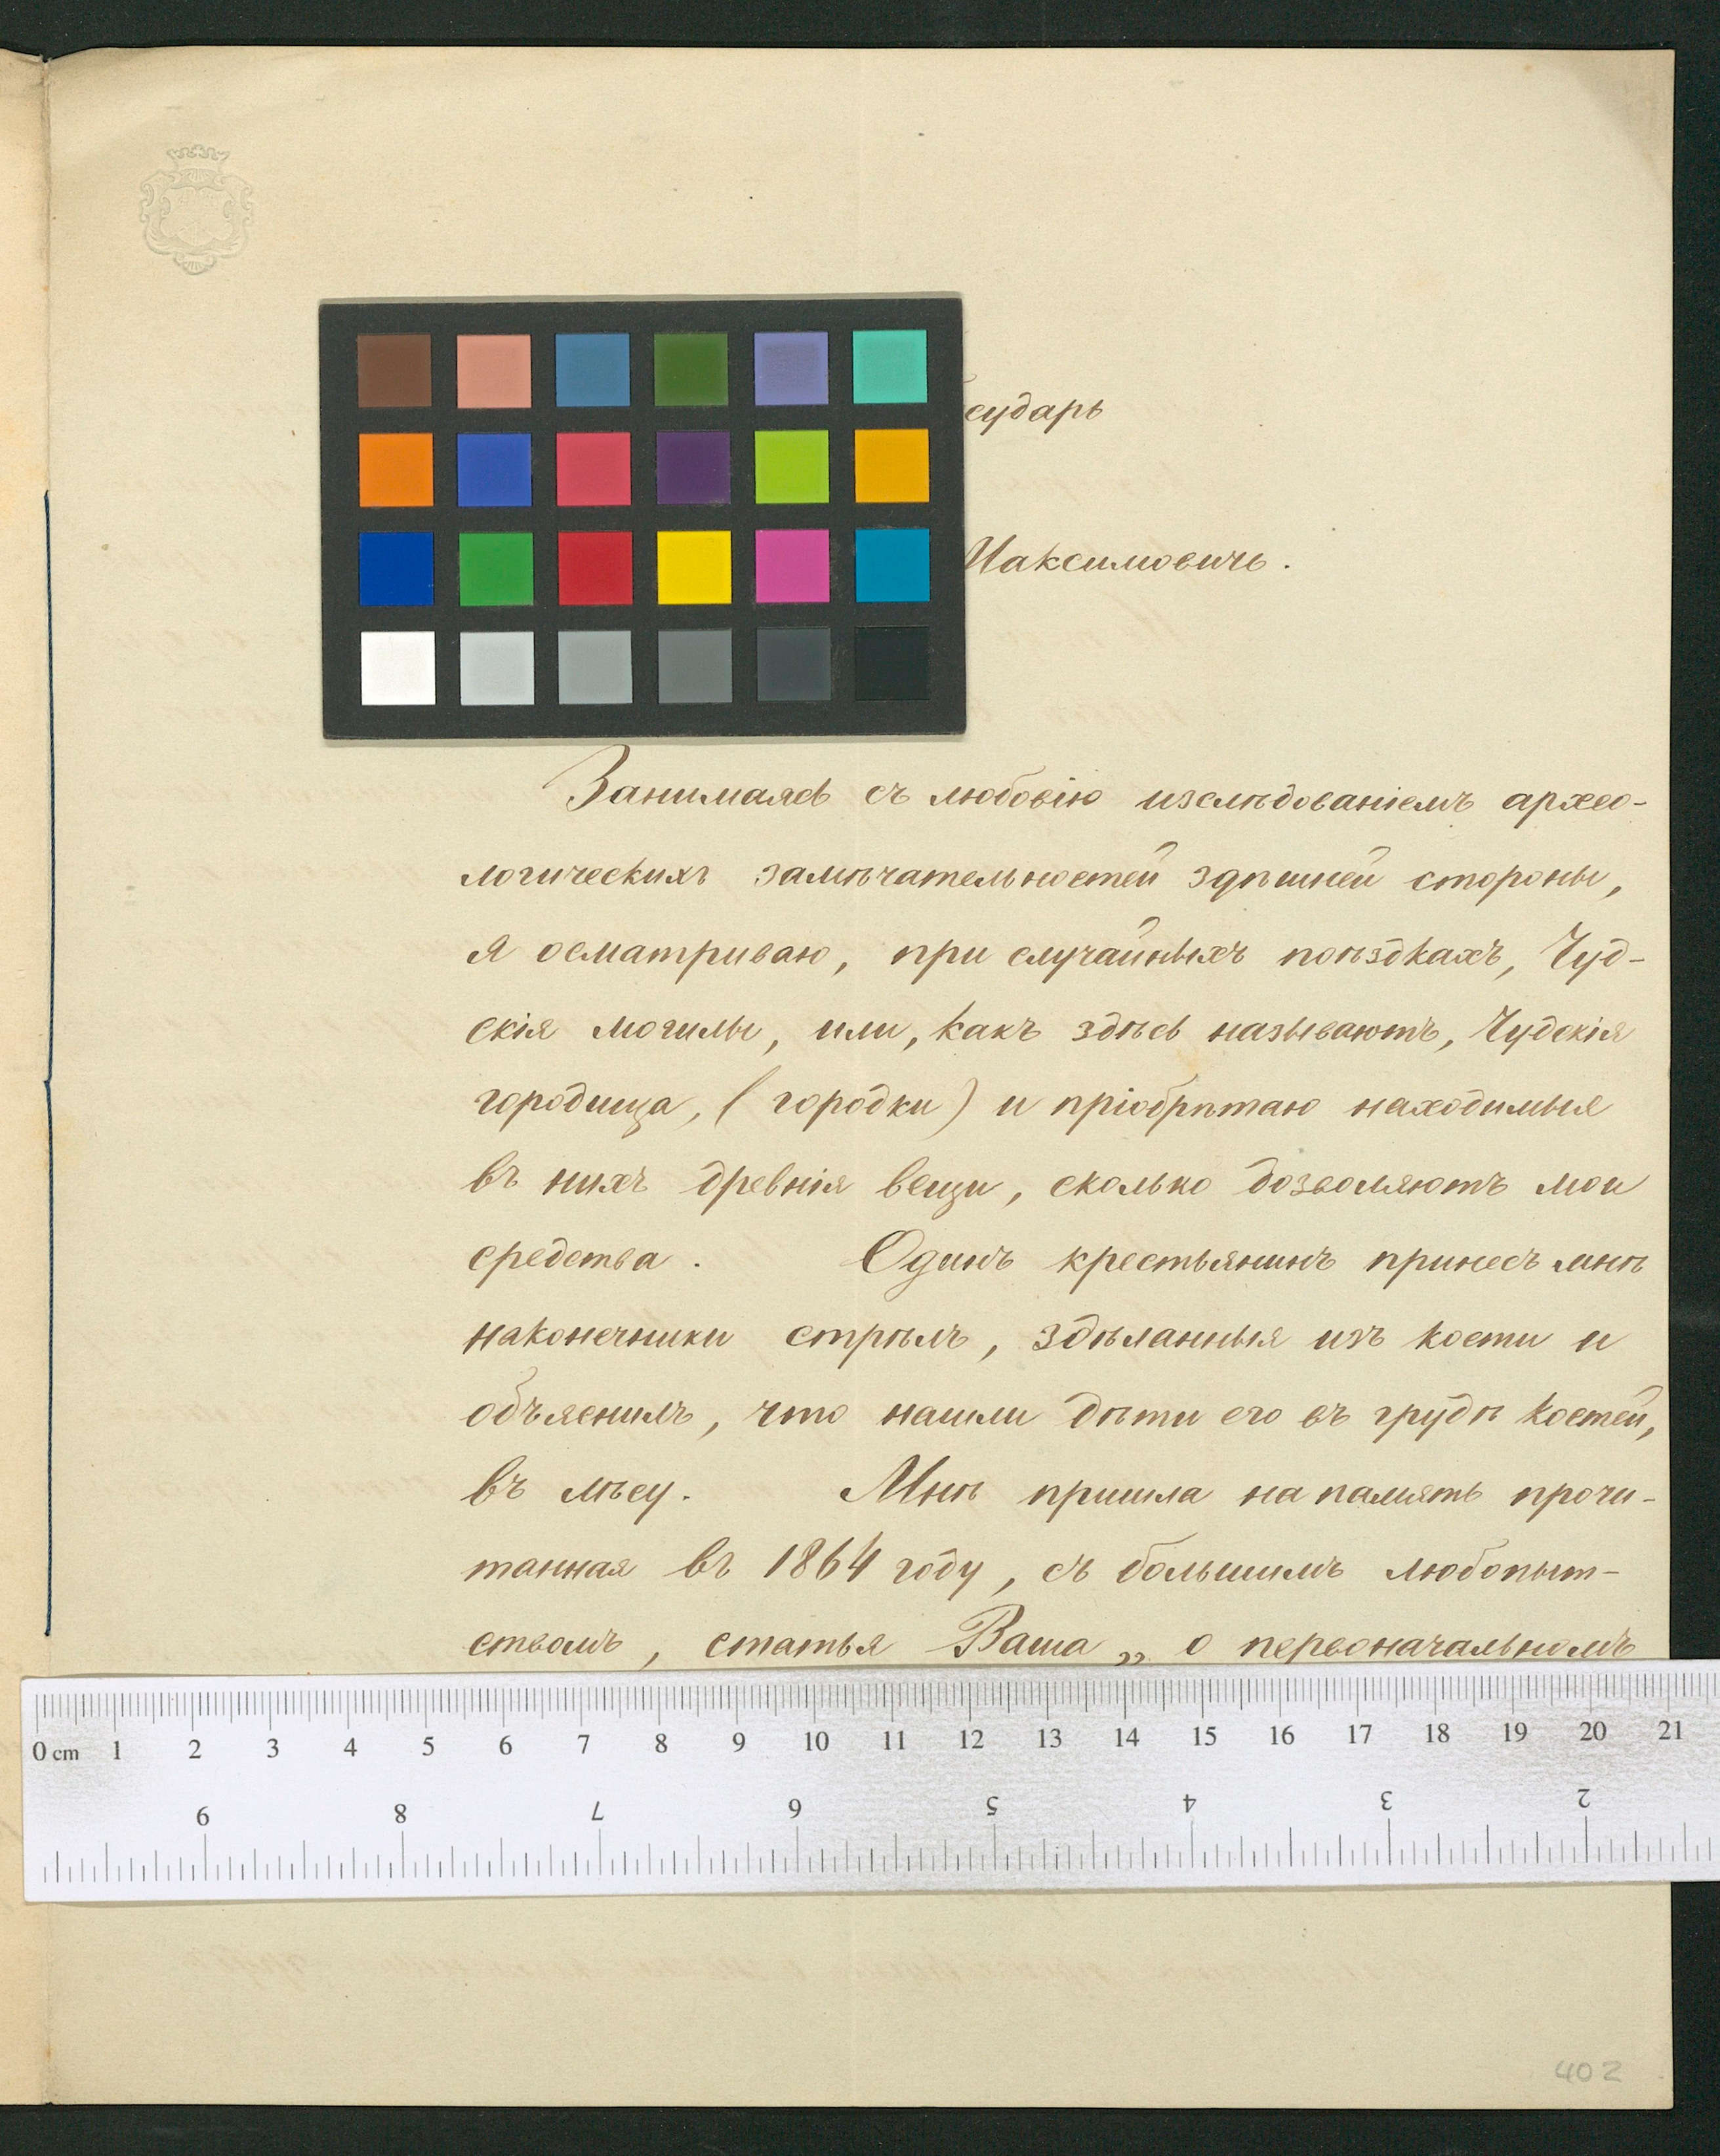 сударь
Максимовичь.
Занимаясь съ любовію изслѣдованіемъ архео-
логическихъ замѣчательностей здѣшней стороны,
я осматриваю, при случайныхъ поѣздкахъ, Чуд-
скія могилы, или, какъ здѣсь называютъ, Чудскія
городища, (городки) и пріобрѣтаю находимыя
въ нихъ древнія вещи, сколько дозволяютъ мои
средства. Одинъ крестьянинъ принесъ мнѣ
наконечники стрѣлъ, здѣланныя изъ кости и
объяснилъ, что нашли дѣти его въ грудѣ костей,
въ лѣсу. Мнѣ пришла на память прочи-
танная въ 1864 году, съ большимъ любопыт-
ствомъ, статья Ваша „о первоначальномъ
0 cm 1 2 3 4 5 6 7 8 9 10 11 12 13 14 15 16 17 18 19 20 21
9 8 7 6 5 4 3 2
402